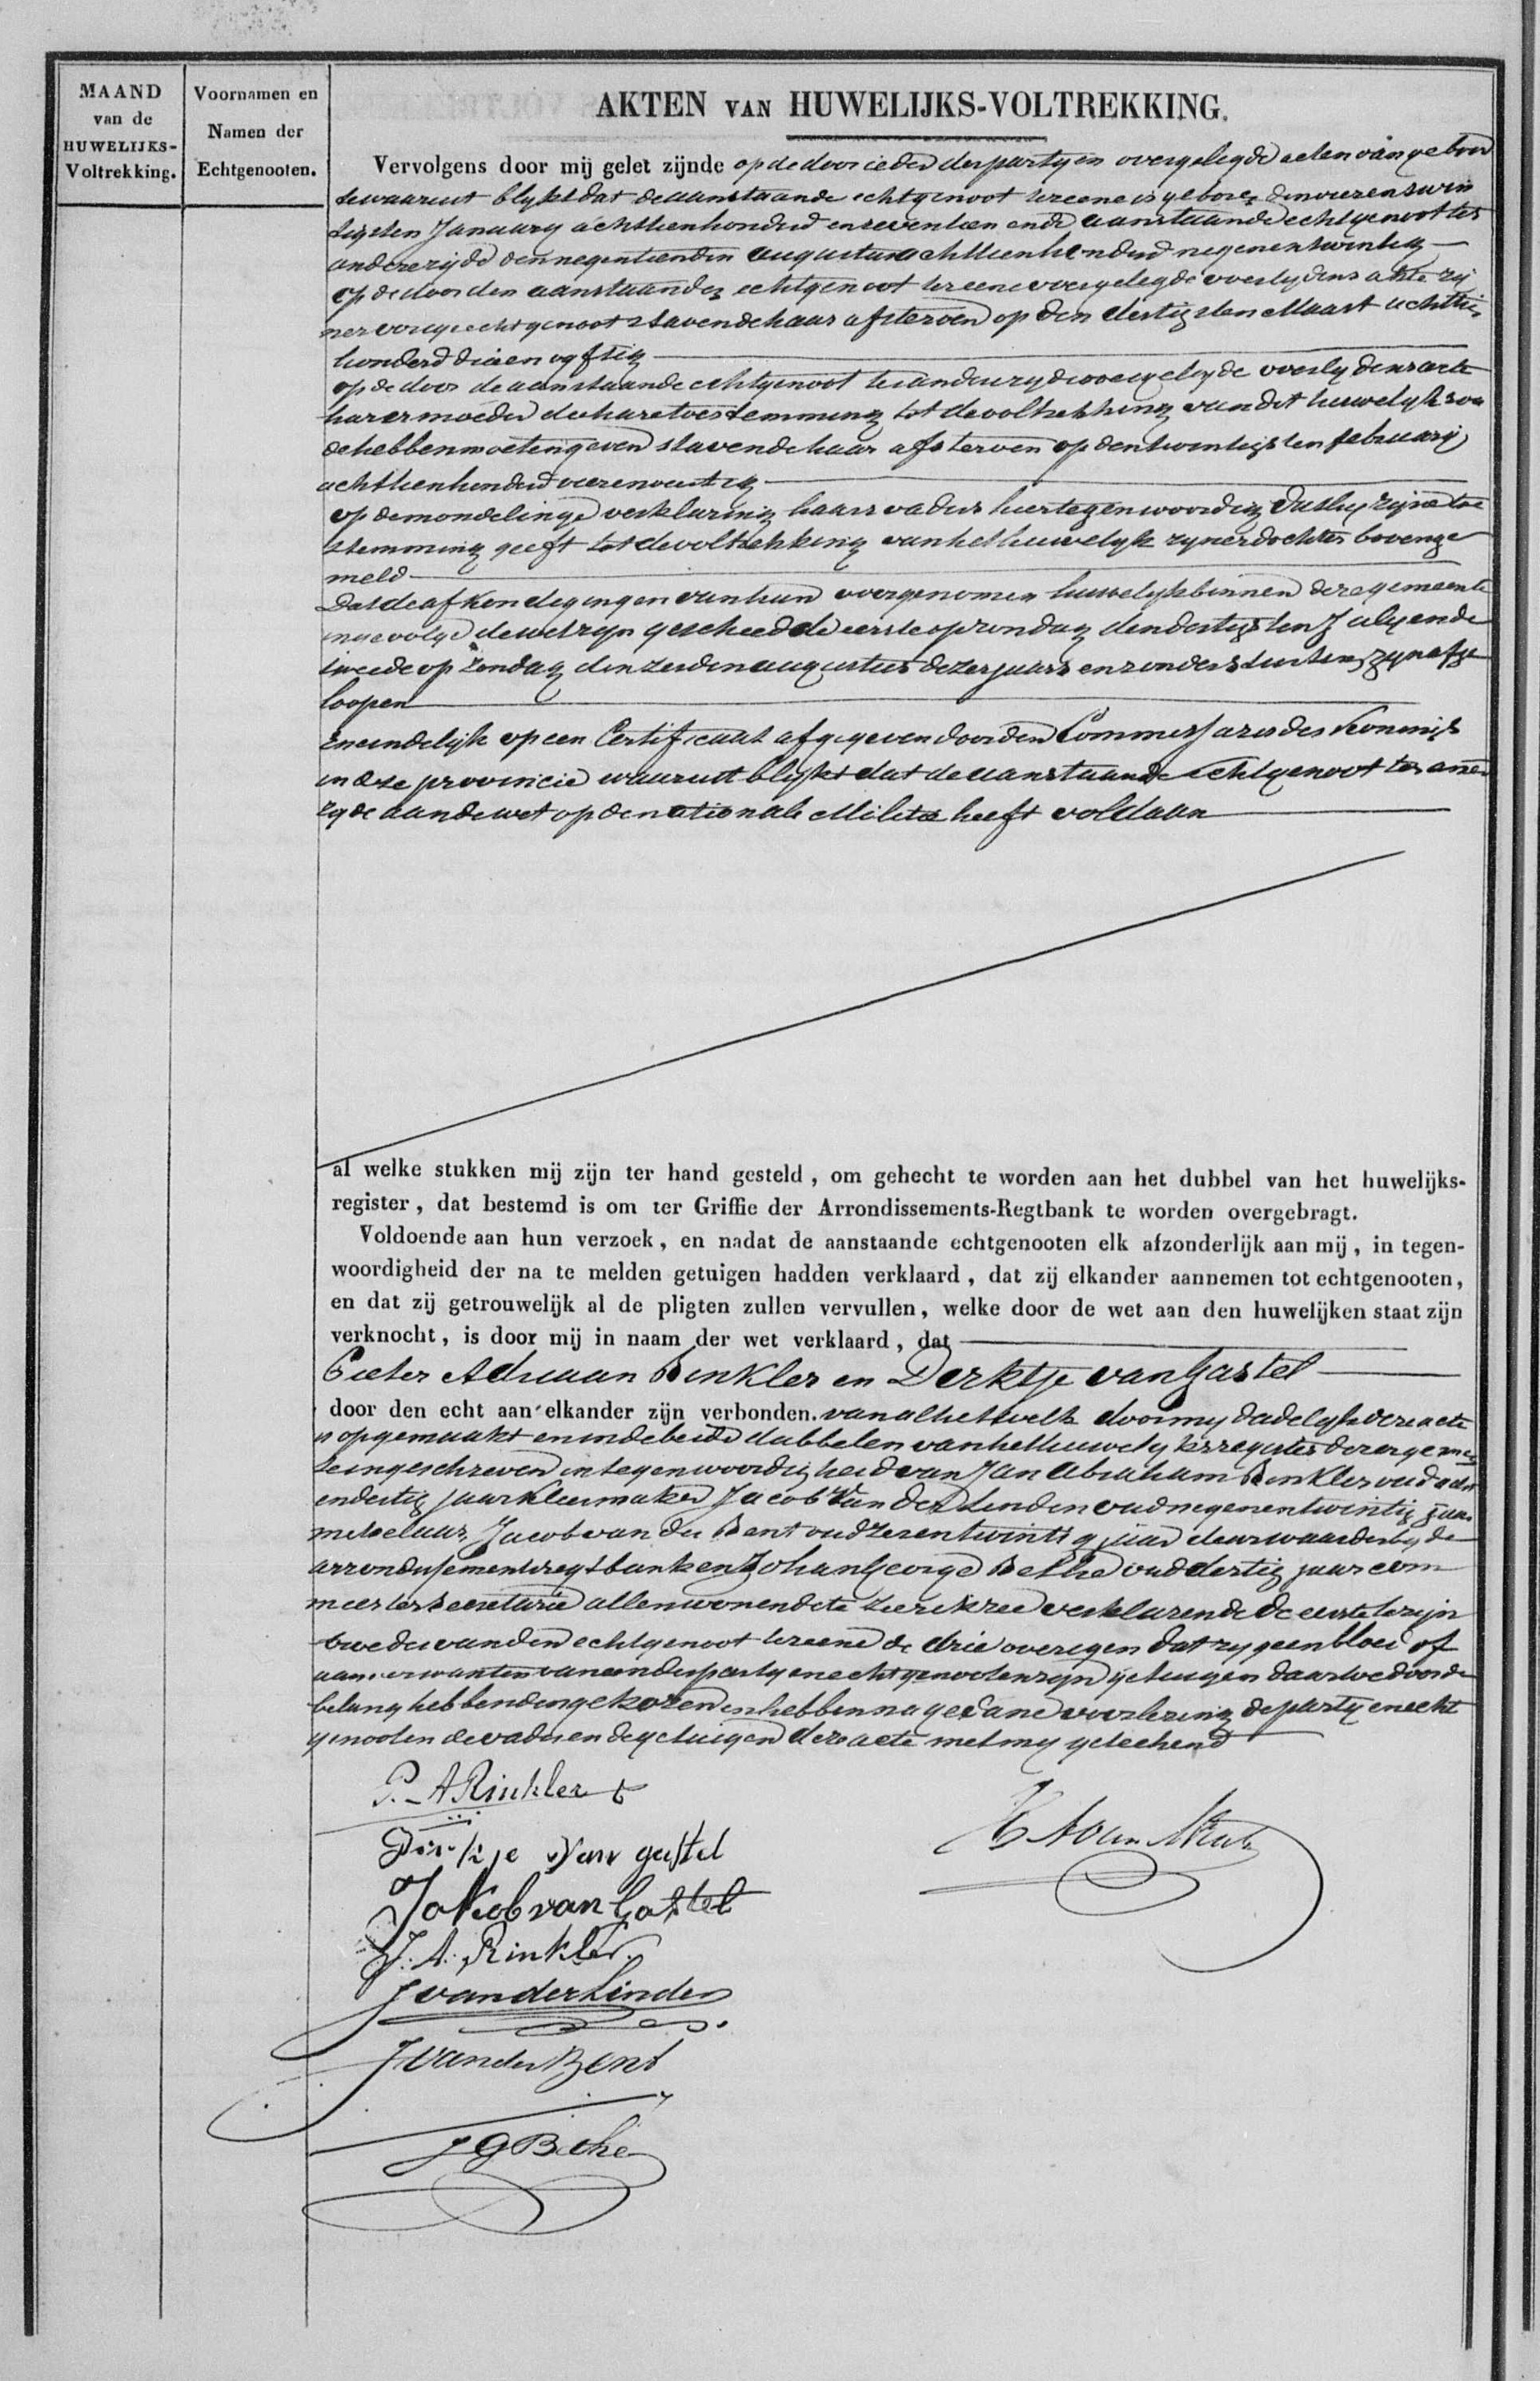 MAAND
van de
HUWELIJKS-
Voltrekking.
Voornamen en
Namen der
Echtgenooten.
AKTEN VAN HUWELIJKS-VOLTREKKING.
Vervolgens door mij gelet zijnde op de door ieder der partyen overgelegde acten van geboor
te waaruit blykt dat de aanstaande echtgenoot ter eene is geboren den vierentwin
tigsten January achttienhonderd en zeventien en de aanstaande echtgenoot ter
andere zijde den negentienden augustus achttienhonderd negenentwintig
op de door den aanstaanden echtgenoot ter eene overgelegde overlydens akte zij
ner vorige echtgenoot stavende haar afsterven op den dertigsten Maart achttien
honderd drieenvyftig
op de door de aanstaande echtgenoot ter andere zyde overgelegde overlydens acte
harer moeder die hare toestemming tot de voltrekking van dit huwelyk zou
de hebben moeten geven stavende haar afsterven op den twintigsten february
achttienhonderd
op de mondelinge verklaring haars vaders hier tegenwoordig dat hy zijne toe
stemming geeft tot de voltrekking van het huwelyk zyner dochter bovenge
meld
Dat de afkondigingen van hun voorgenomen huwelyk binnen deze gemeente
ingevolge de wet zyn geschied de eerste op zondag den dertigsten July en de
tweede op zondag den zesden augustus dezes jaars en zonder stuiten zyn afge
loopen
En eindelijk op een Certificaat afgegeven door den Commissaris des Konings
in deze provincie waaruit blykt dat de aanstaande echtgenoot ter eener
zyde aan de wet op de nationale Militie heeft voldaan
al welke stukken mij zijn ter hand gesteld, om gehecht te worden aan het dubbel van het huwelijks-
register, dat bestemd is om ter Griffie der Arrondissements-Regtbank te worden overgebragt.
Voldoende aan hun verzoek, en nadat de aanstaande echtgenooten elk afzonderlijk aan mij, in tegen-
woordigheid der na te melden getuigen hadden verklaard, dat zij elkander aannemen tot echtgenooten,
en dat zij getrouwelijk al de pligten zullen vervullen, welke door de wet aan den huwelijken staat zijn
verknocht, is door mij in naam der wet verklaard, dat
Pieter Adriaan Rinkler en Derktje van Gastel
door den echt aan elkander zijn verbonden. van al hetwelk door my dadelyk deze acte
is opgemaakt en in de beide dubbelen van het huwelyks register dezer gemeen
te ingeschreven in tegenwoordigheid van Jan Abraham Rinkler oud acht
en dertig jaar kleermaker Jacob van der Linden oud negenentwintig jaar
metselaar, Jacob van der Bent oud zesentwintig jaar deurwaarder by de
arrondissements regtbank en Johan George Bethe oud dertig jaar com
mies ter secretarie allen wonende te Zierikzee verklarende de eerste te zijn
broeder van den echtgenoot ter eene de drie overigen dat zy geen bloed of
aanverwanten van een der partyen echtgenooten zyn getuigen daartoe door de
belanghebbenden gekozen en hebben na gedane voorlezing de partyen echt
genooten de vader en de getuigen deze acte met my geteekend
P. A Rinkler
Dirkje van gastel
Jakob van Gastel
J. A. Rinkler.
J van der Linden
J van der Bent
J G Bethe